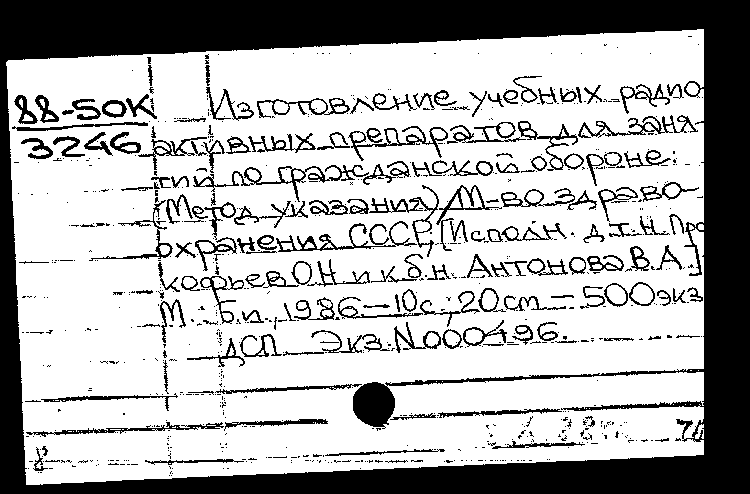 88-50К
3246
Изготовление учебных радио-
активных препаратов для заня-
тий по гражданской обороне:
(Метод. указания)/М-во здраво-
охранения СССР; [Исполн. д.т.н. Про
кофьев О.Н. и к.б.н. Антонова В.А.]
М.: Б.и., 1986 — 10с.; 20cm — 500экз
ДСП Экз. N 000496.
8